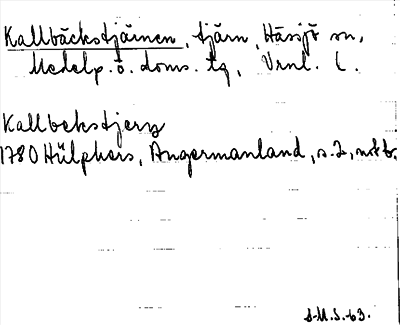 Kallbäckstjärnen, tjärn, Hässjö sn,
Medelp. ö. doms. tg, Vrnl. l.
Kallbekstjern
1780 Hülphers, Ångermanland, s. 2, not b.
S.M.S.-63.